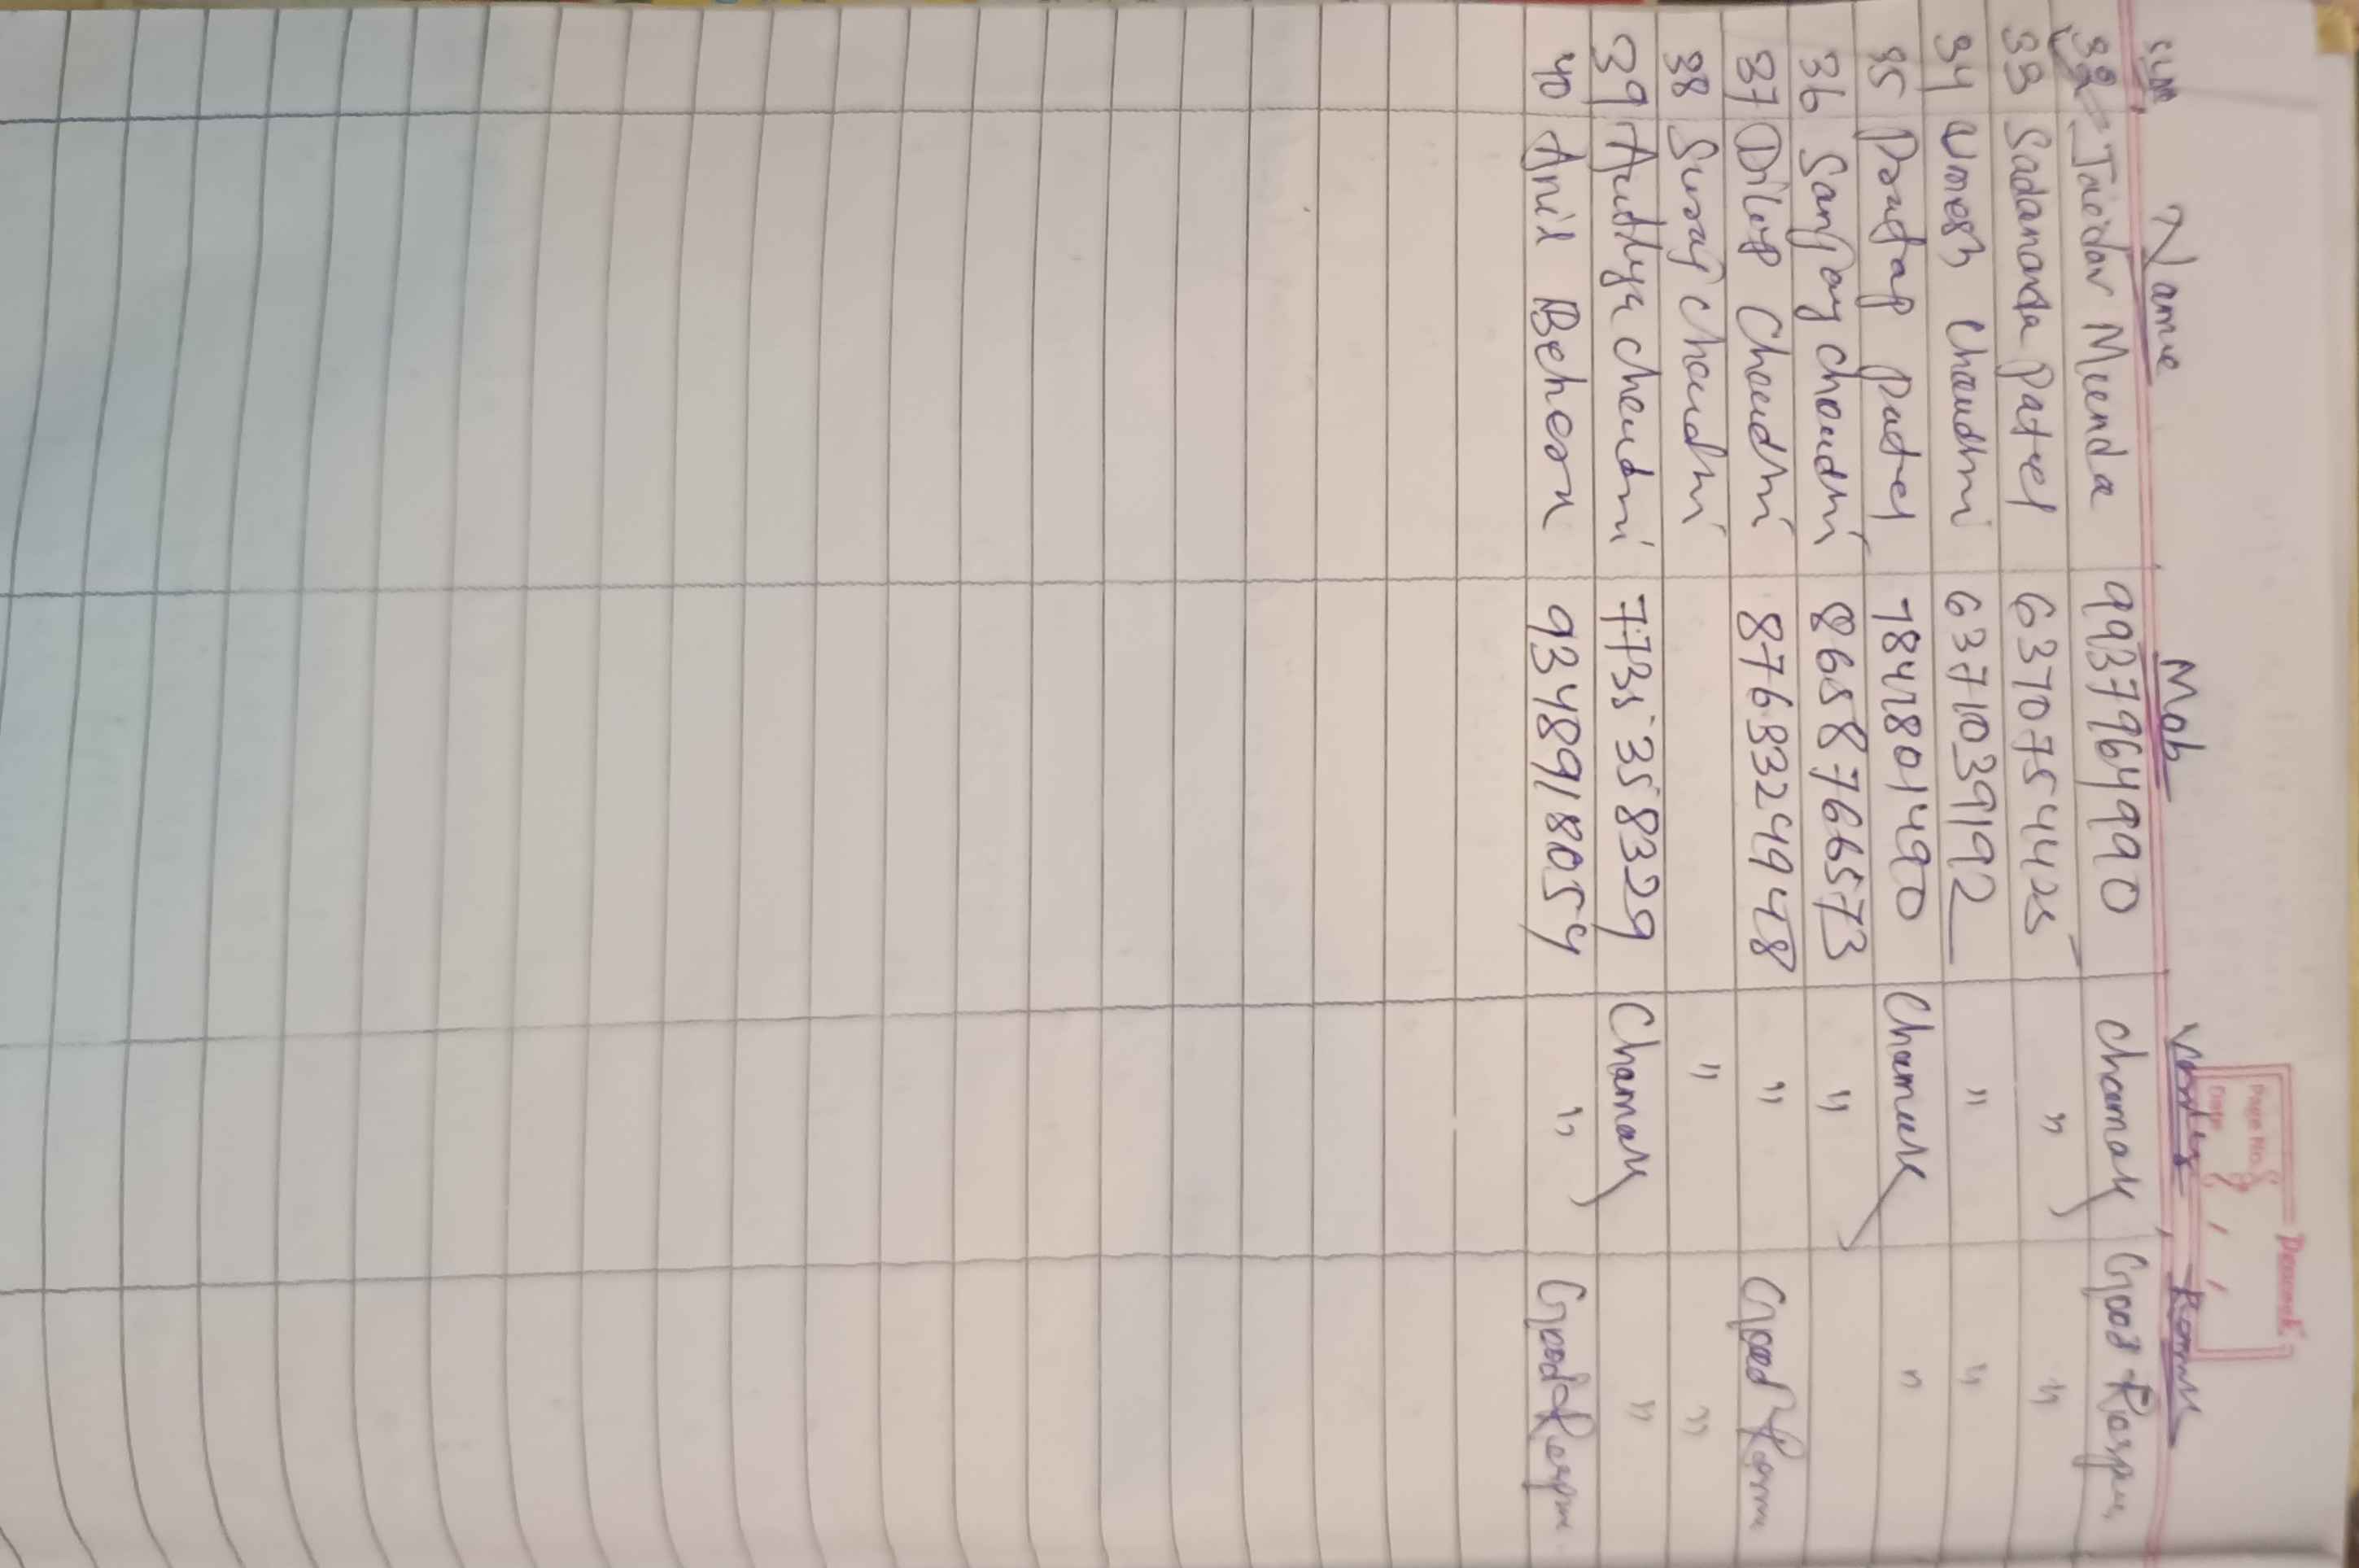 Page No.
Date
Name Mob
32 Jaidar Munda 9937964990 Chamak Good Respn
33 Sadananda Patel 6370754425 " "
34 Umesh Chaudhri 6371039192 " "
35 Pratap Patel 7847801490 Chamak "
36 Sanjay Choudhri 8658766573 "
37 Dilip Chaudhri 8763324948 " Good
38 Suraj Chaudhri " "
39 Chaudhri 7735358329 Chamak "
40 Anil Behera 9348918054 " Good Respn